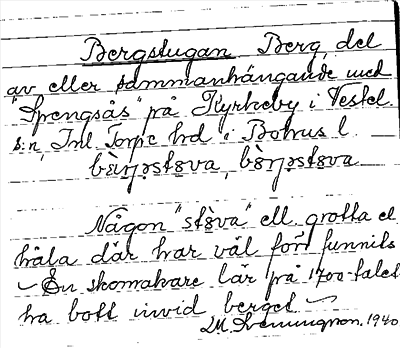 Bergstugan Berg, del
av eller sammanhängande med
"Spengsås" på Kyrkeby i Vestel.
s:n, Inl. Torpe hd i Bohus l.
Någon "stöva" ell. grotta el
håla där har väl förr funnits
– En skomakare lär på 1700-talet
ha bott invid berget –
1940